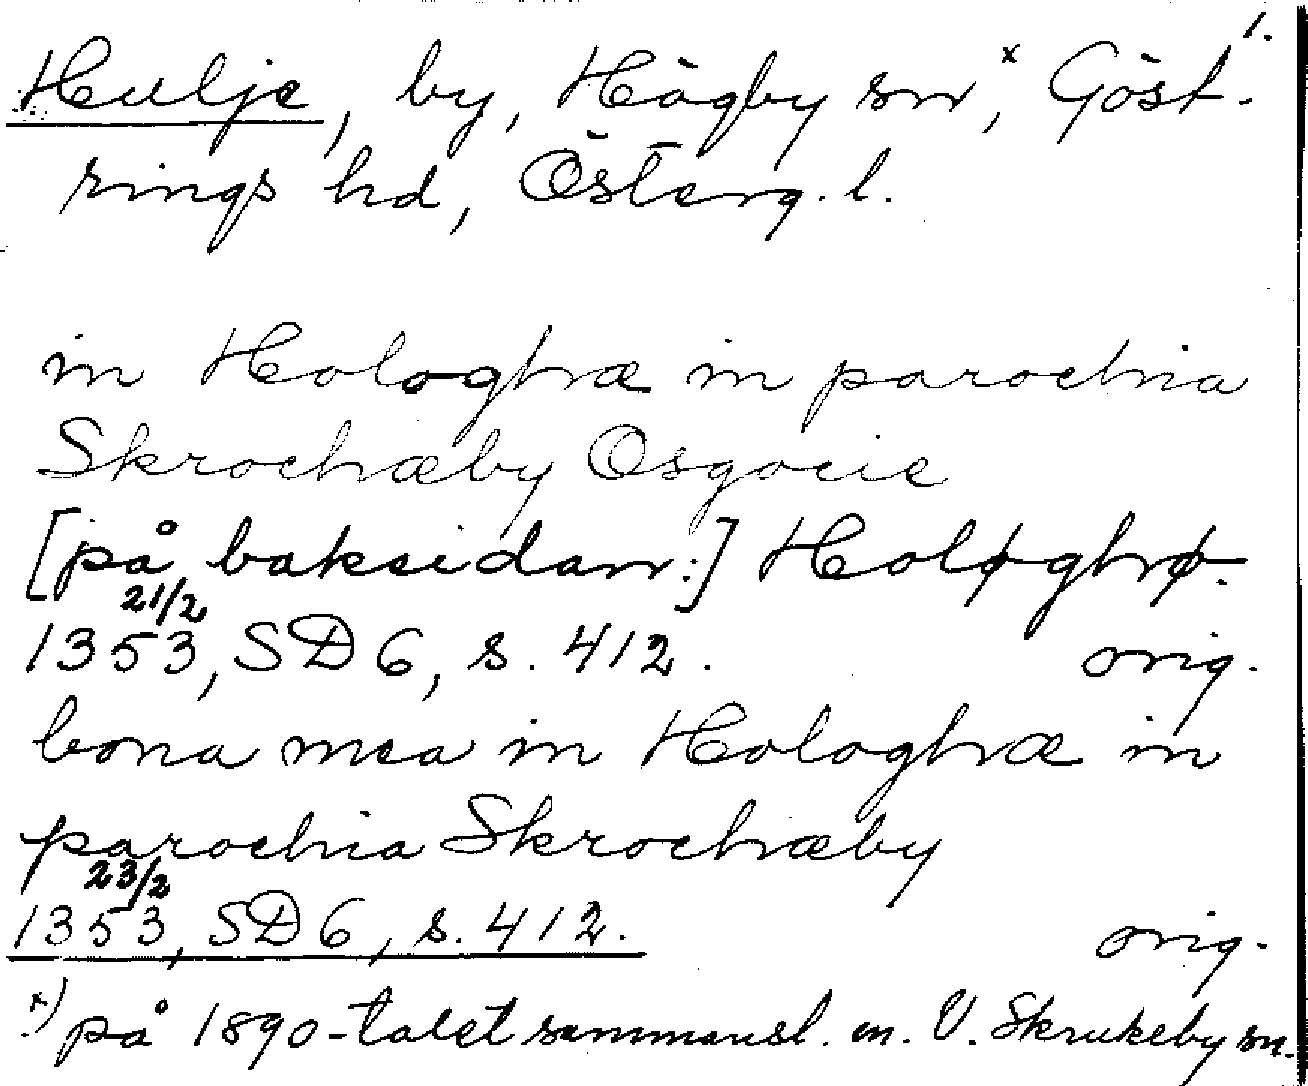 1.
Hulje, by, Högby sn,ˣ Göst-
rings hd, Österg. l.
in Hologhæ in parochia
Skrochæby Osgocie
[på baksidan:]Holøghø.
21/2
1353, SD 6, s. 412. orig.
bona mea in Hologhæ in
parochia Skrochæby
23/2
1353, SD 6, s. 412. orig.
x) på 1890-talet sammansl. m. V. Skrukeby sn.